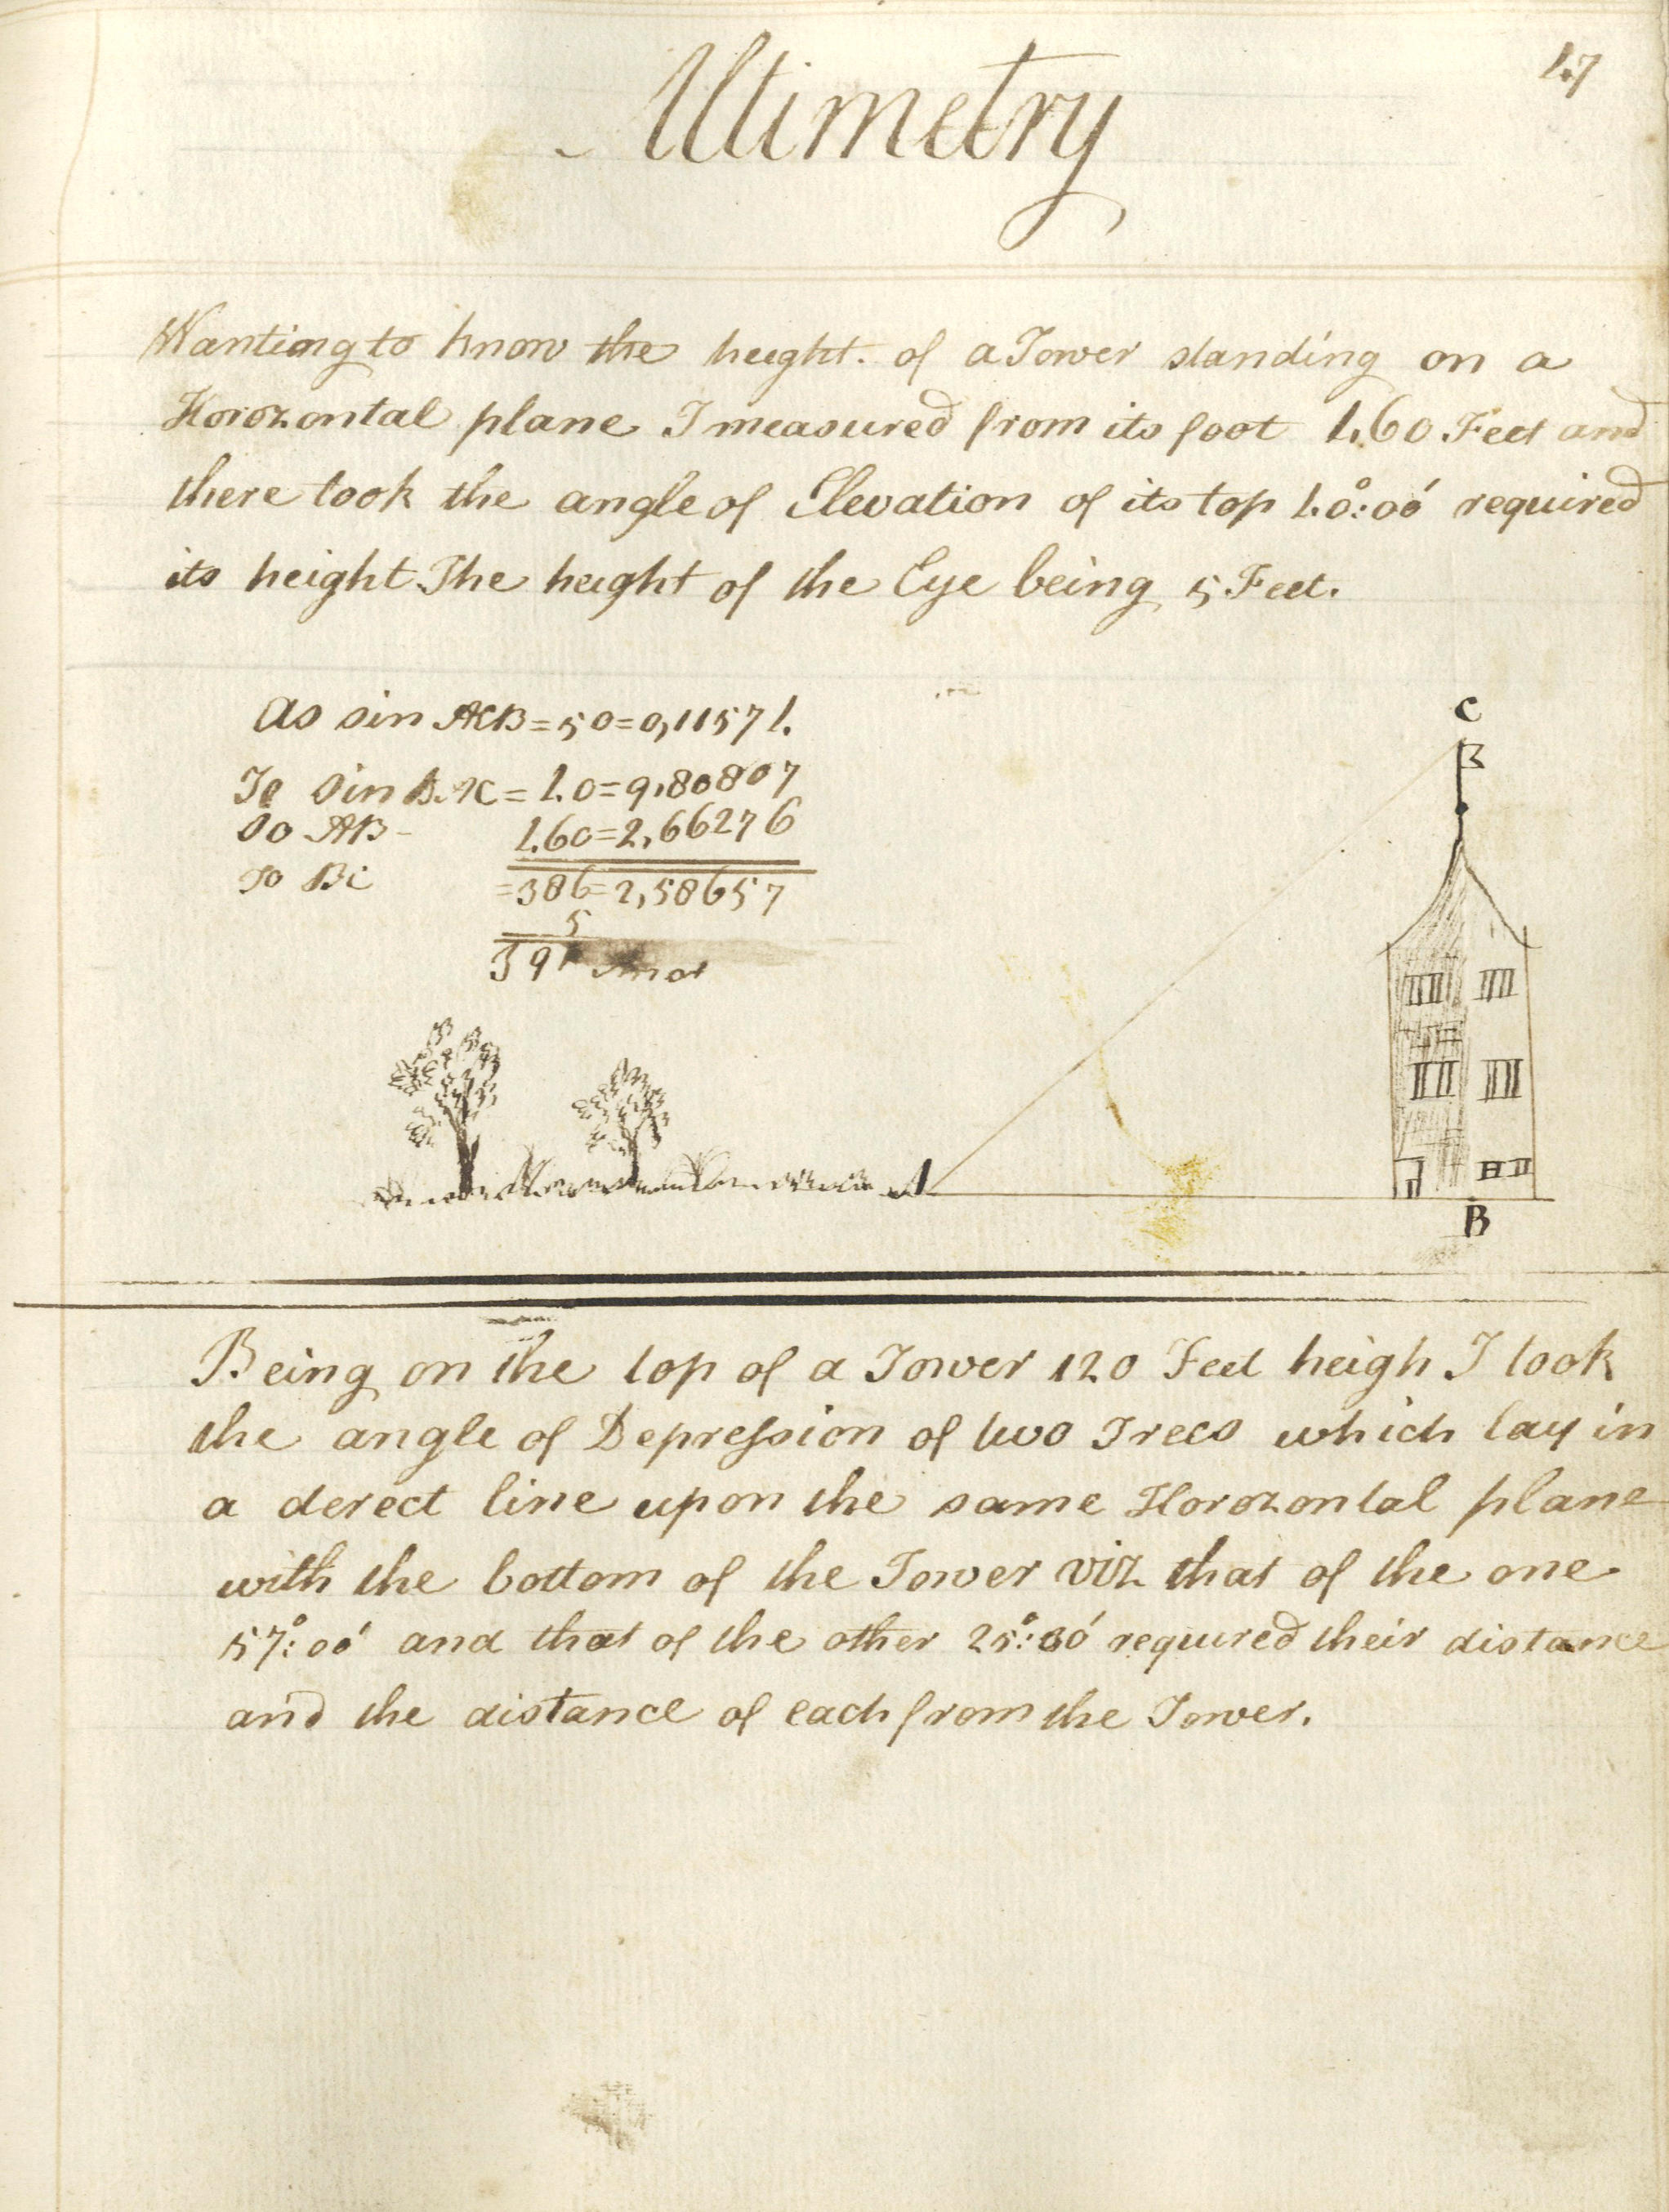 47
Altimetry
Wantiong to know the height. of a Tower standing on a
Horozontal plane I measured from its foot 460 Feet and
there took the angle of Elevation of its top 40°:00' required
its height The height of the Eye being 5 Feet.
As sin ACB=50=0,11574
To sin BAC=40=9,80807
So AB- 460=2,66276
To BC =386=2,58657
5
391
C
A
B
Being on the top of a Tower 120 Feet heigh I took
the angle of Depression of two Trees which lay in
a derect line upon the same Horozontal plane
with the bottom of the Tower viz that of the one
57°:00' and that of the other 25°:30' required their distance
and the distance of each from the Tower.